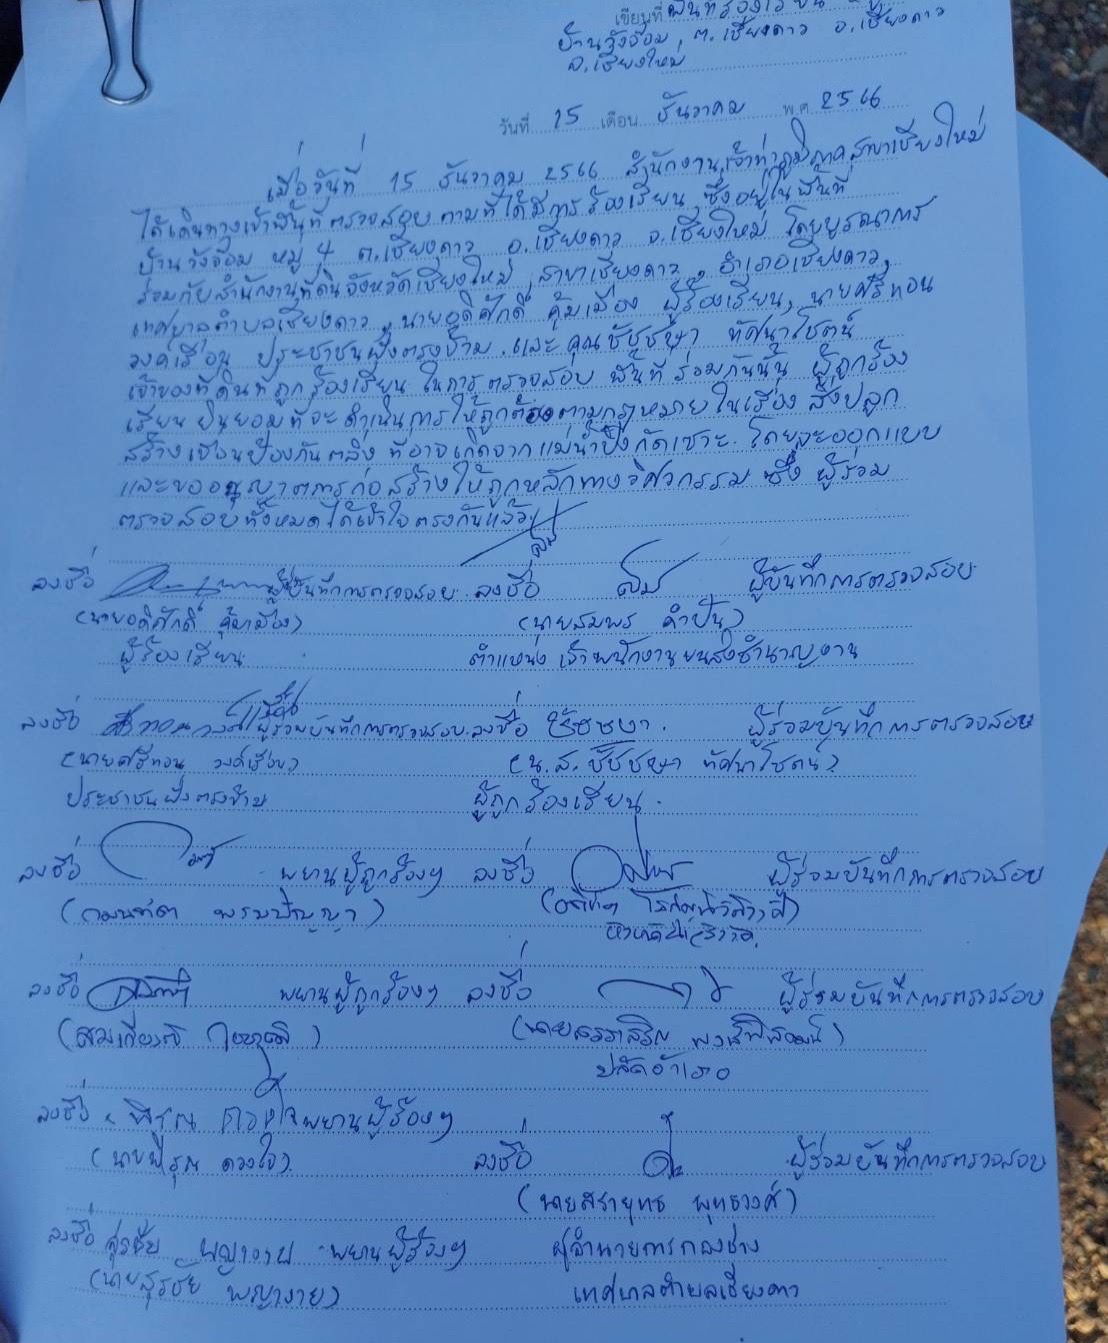 เขียนที่ พื้นที่ร้องเรียน
บ้านวังจ๊อม ต.เชียงดาว อ.เชียงดาว
จ.เชียงใหม่
วันที่ 15 เดือน ธันวาคม พ.ศ. 2566
เมื่อวันที่ 15 ธันวาคม 2566 สำนักงานเจ้าท่าภูมิภาคสาขาเชียงใหม่
ได้เดินทางเข้าพื้นที่ตรวจสอบตามที่ได้มีการร้องเรียน ซึ่งอยู่ในพื้นที่
บ้านวังจ๊อม หมู่ 4 ต.เชียงดาว อ.เชียงดาว จ.เชียงใหม่ โดยบูรณาการ
ร่วมกับสำนักงานที่ดินจังหวัดเชียงใหม่ สาขาเชียงดาว, อำเภอเชียงดาว,
เทศบาลตำบลเชียงดาว, นายอดิศักดิ์ คุ้มเมือง ผู้ร้องเรียน, นายศรีทอน
วงค์เรือน ประชาชนฝั่งตรงข้าม และ คุณชัชชษา ทัศนาโชตน์
เจ้าของที่ดินที่ถูกร้องเรียน ในการตรวจสอบ พื้นที่ร่วมกันนั้น ผู้ถูกร้อง
เรียน ยินยอมที่จะดำเนินการให้ถูกต้องตามกฎหมายในเรื่อง สิ่งปลูก
สร้างเขื่อนป้องกันตลิ่ง ที่อาจเกิดจากแม่น้ำปิงกัดเซาะ โดยจะออกแบบ
และขออนุญาตการก่อสร้างให้ถูกหลักทางวิศวกรรม ซึ่ง ผู้ร่วม
ตรวจสอบทั้งหมดได้เข้าใจตรงกันแล้ว
ลงชื่อ ผู้บันทึกการตรวจสอบ ลงชื่อ ผู้บันทึกการตรวจสอบ
(นายอดิศักดิ์ คุ้มเมือง) (นายสมพร คำปัน)
ผู้ร้องเรียน ตำแหน่ง เจ้าพนักงานขนส่งชำนาญงาน
ลงชื่อ ผู้ร่วมบันทึกการตรวจสอบ ลงชื่อ ชัชชษา ผู้ร่วมบันทึกการตรวจสอบ
(นายศรีทอน วงค์เรือน) (น.ส. ชัชชษา ทัศนาโชตน์)
ประชาชนฝั่งตรงข้าม ผู้ถูกร้องเรียน
ลงชื่อ พยานผู้ถูกร้องฯ ลงชื่อ ผู้ร่วมบันทึกการตรวจสอบ
ลงชื่อ พยานผู้ถูกร้องฯ ลงชื่อ ผู้ร่วมบันทึกการตรวจสอบ
ปลัดอำเภอ
ลงชื่อ พยานผู้ร้องฯ
(นายพิรุณ ดวงใจ) ลงชื่อ ผู้ร่วมบันทึกการตรวจสอบ
(นายสรายุทธ พุทธวงค์)
ลงชื่อ สุรชัย พญางาย พยานผู้ร้องฯ ผู้อำนวยการกองช่าง
(นายสุรชัย พญางาย) เทศบาลตำบลเชียงดาว